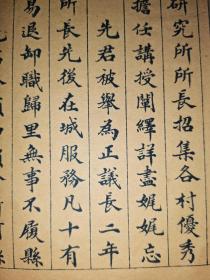 研究所所長招集各村優秀
擔任講授闡繹詳盡娓娓忘
先君被舉為正議長二年
所長先後在城服務凡十有
易退卸職歸里無事不履縣